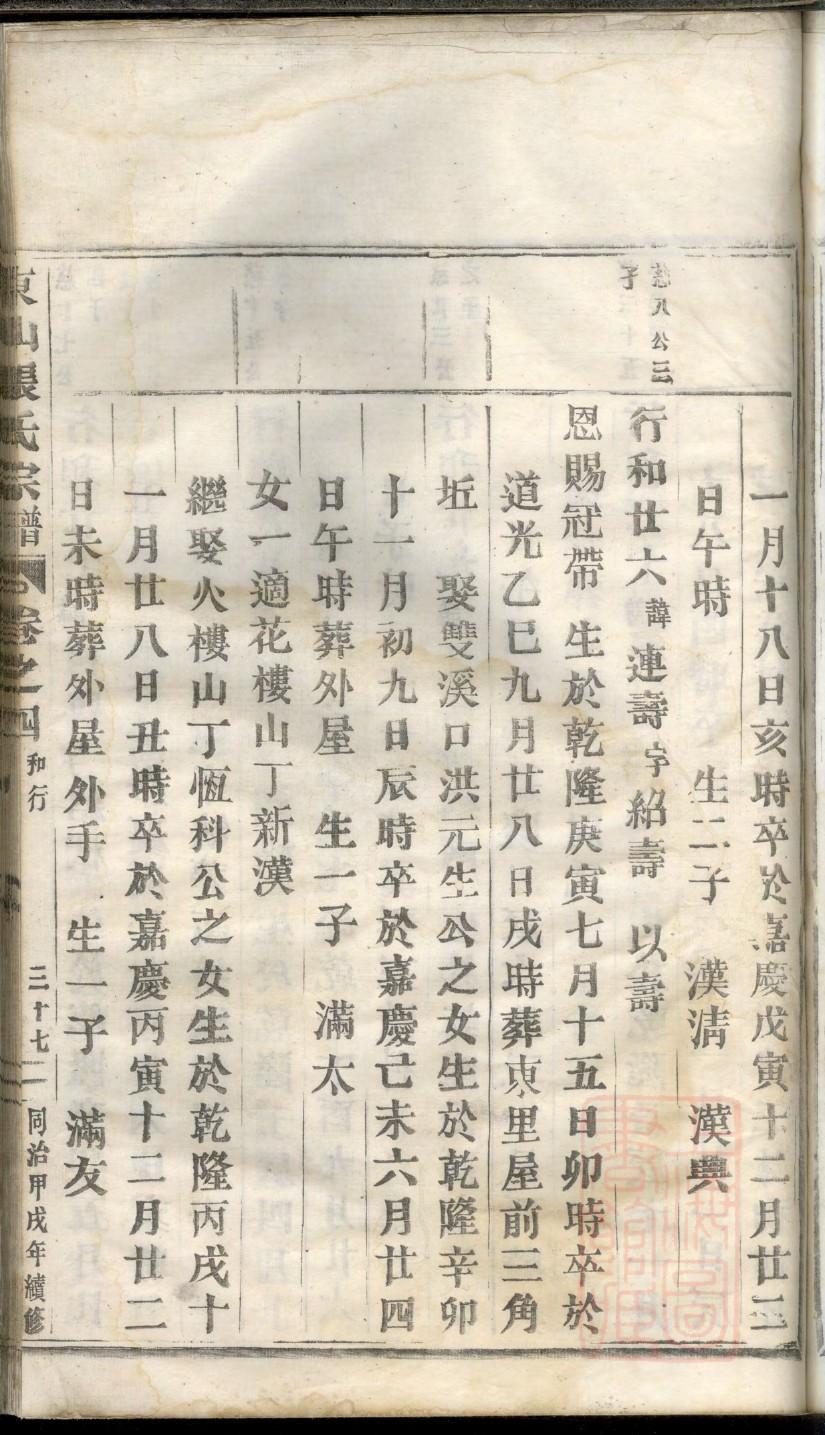 一月十八日亥時卒於嘉慶戊寅十二月廿三
日午時　生二子　漢淸　漢興
慈八公三
子
行和廿六諱連壽字紹壽　以壽
恩賜冠帶　生於乾隆庚寅七月十五日卯時卒於
道光乙巳九月廿八日戌時葬東里屋前三角
坵　娶雙溪口洪元生公之女生於乾隆辛卯
十一月初九日辰時卒於嘉慶己未六月廿四
日午時葬外屋　生一子　滿太
女一適花樓山丁新漢
繼娶火樓山丁恆科公之女生於乾隆丙戌十
一月廿八日丑時卒於嘉慶丙寅十二月廿二
日未時葬外屋外手　生一子　滿友
東山張氏宗譜　卷之四　和行　三十七　同治甲戌年續修